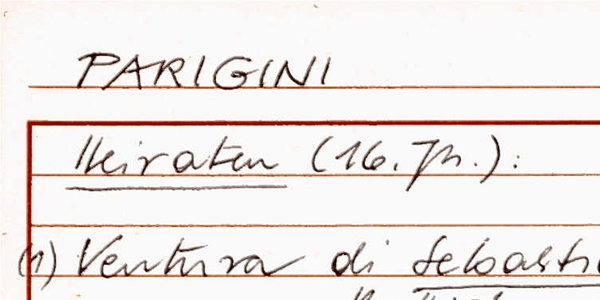 PARIGINI
Heiraten (16. Jh.):
(1) Ventura di Sebasti